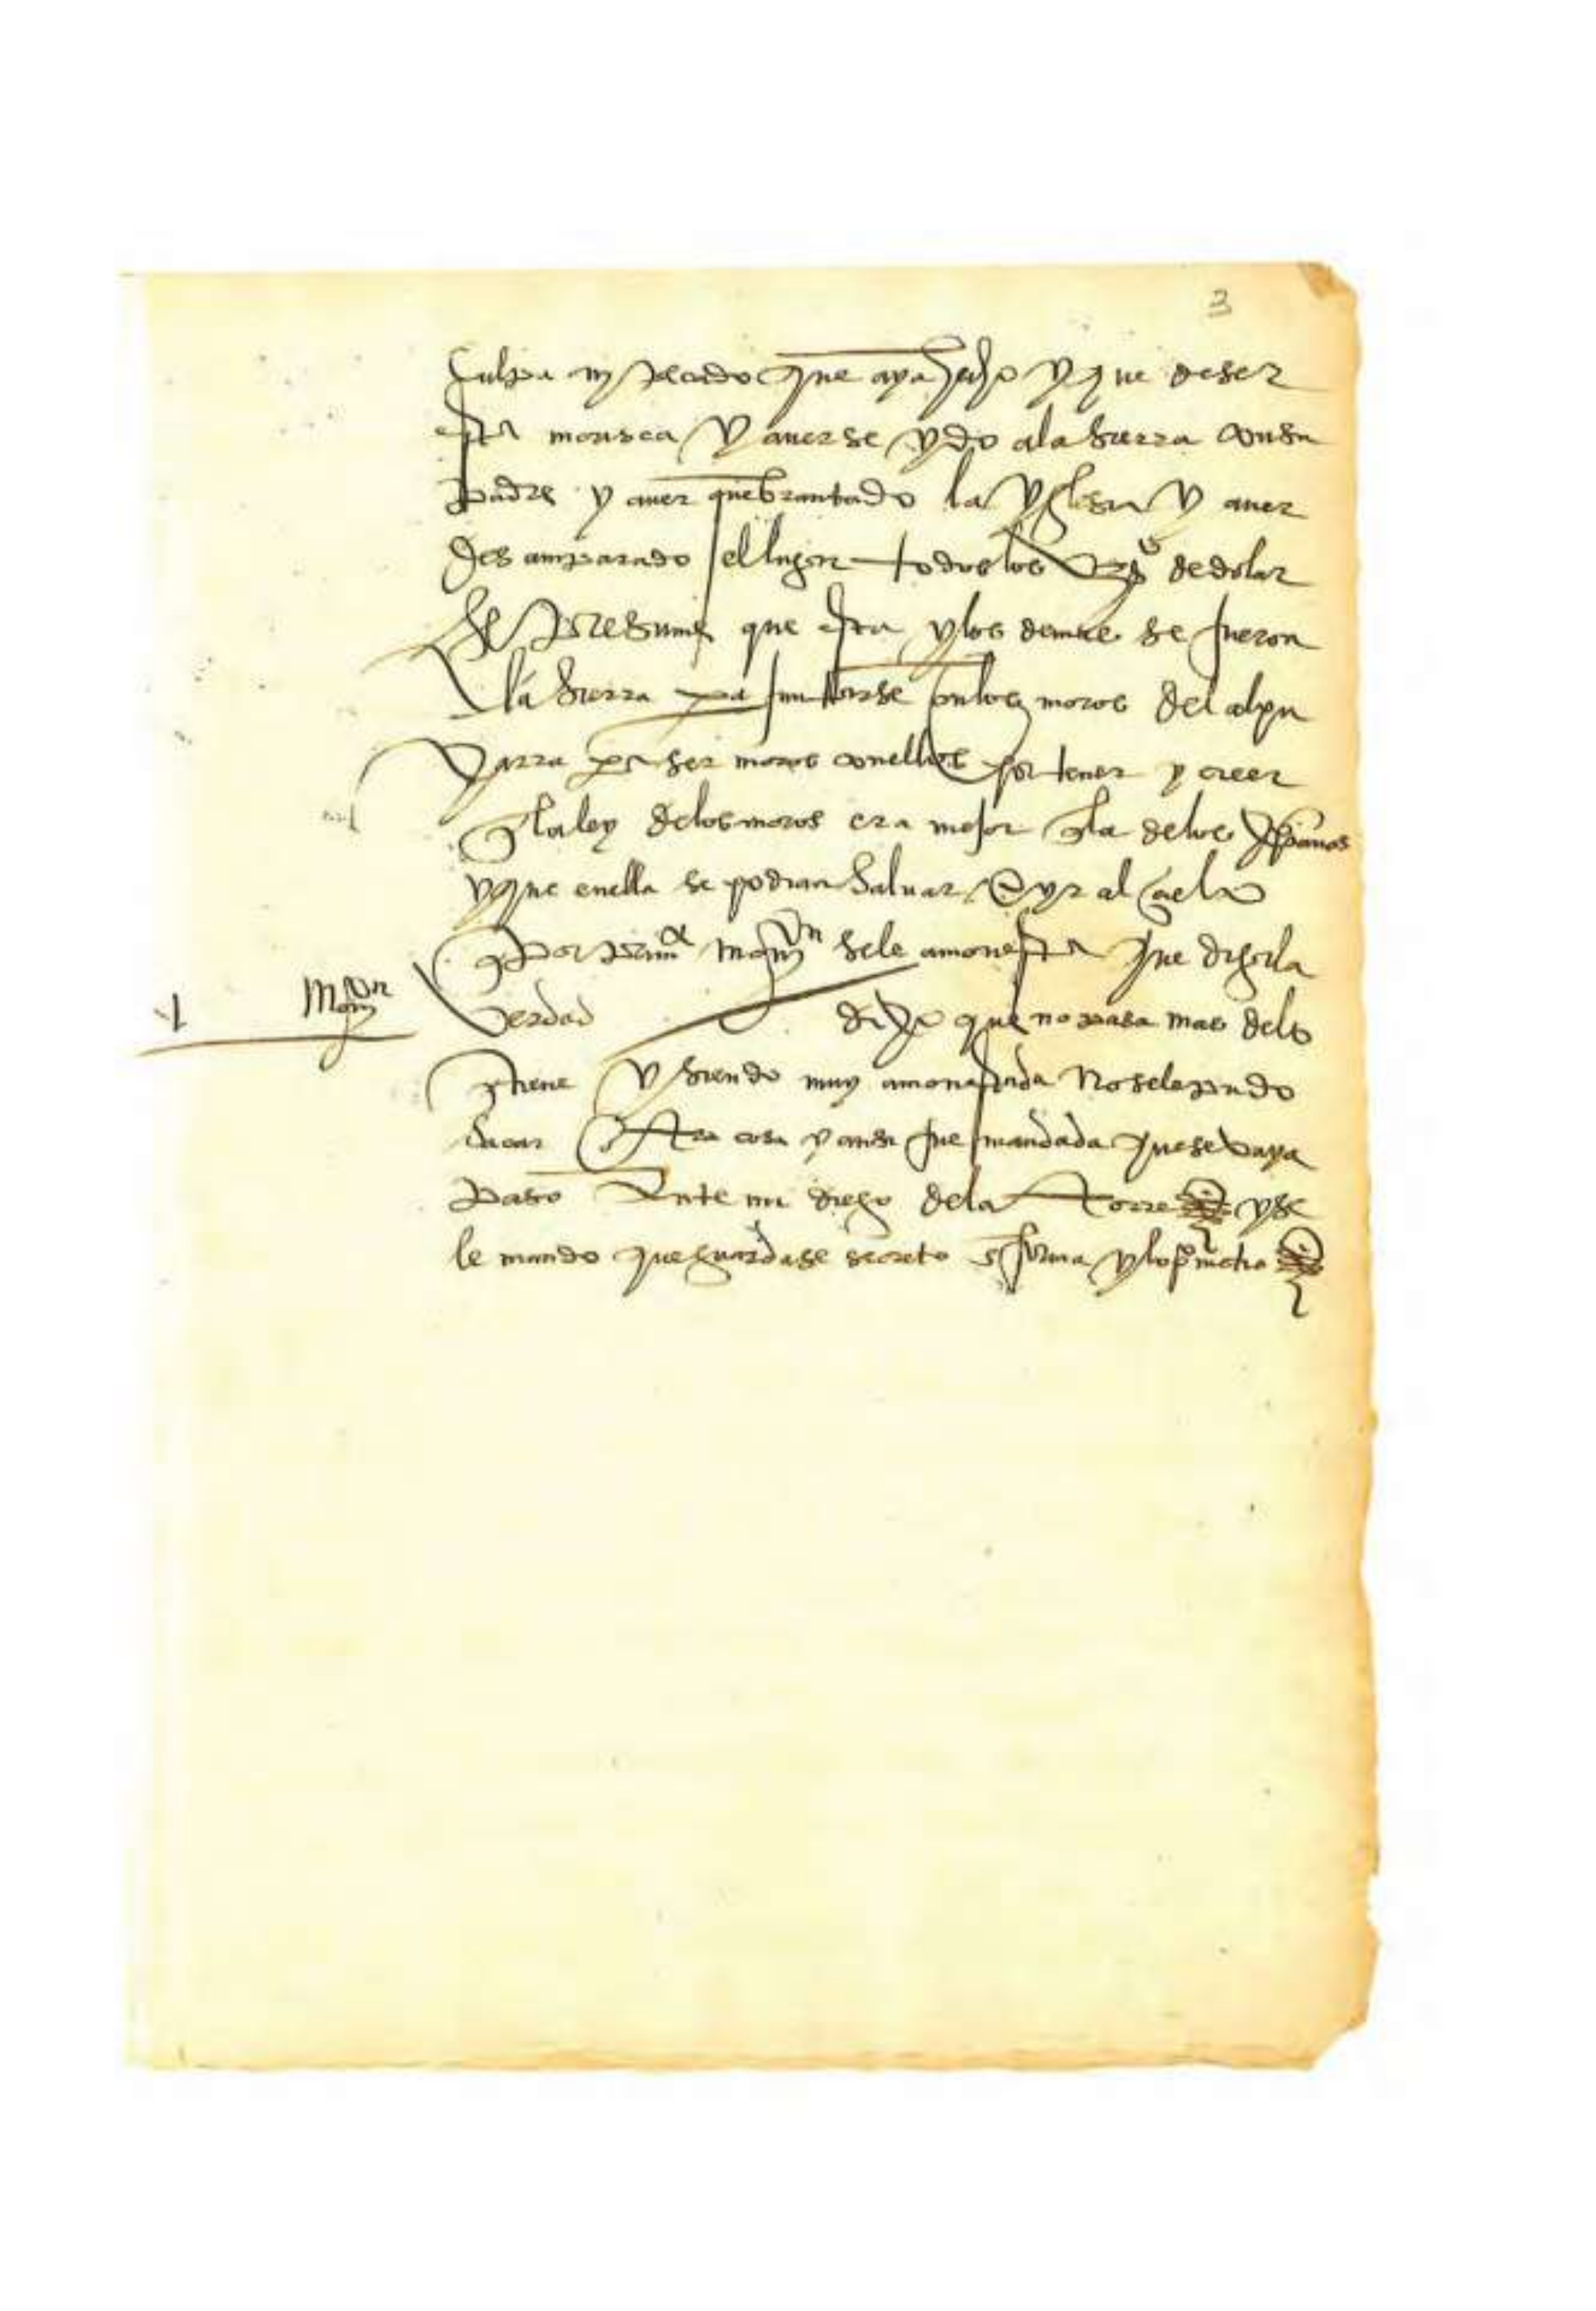 3
culpa ny pecado que aya hecho y que de ser
esta morisca y averse ydo a la sierra con su
padre y aver quebrantado la yglesia y aver
desamparado el lugar todos los vzºs de dolar
se presume que esta y los demas se fueron
a la sierra pa juntarse con los moros del alpu
xarra pa ser moros con ellos por tener y creer
q la ley de los moros era mejor q la de los xpianos
y que en ella se podian salvar e yr al cielo
por prima monon se le amonesta que diga la
1 monon
verdad dixo que no pasa mas de lo
q tiene y siendo muy amonestada no se le pudo
sacar otra cosa y ansi fue mandada que se vaya
paso ante mi diego de la torre y se
le mando que guarde secreto en forma y lo prometio